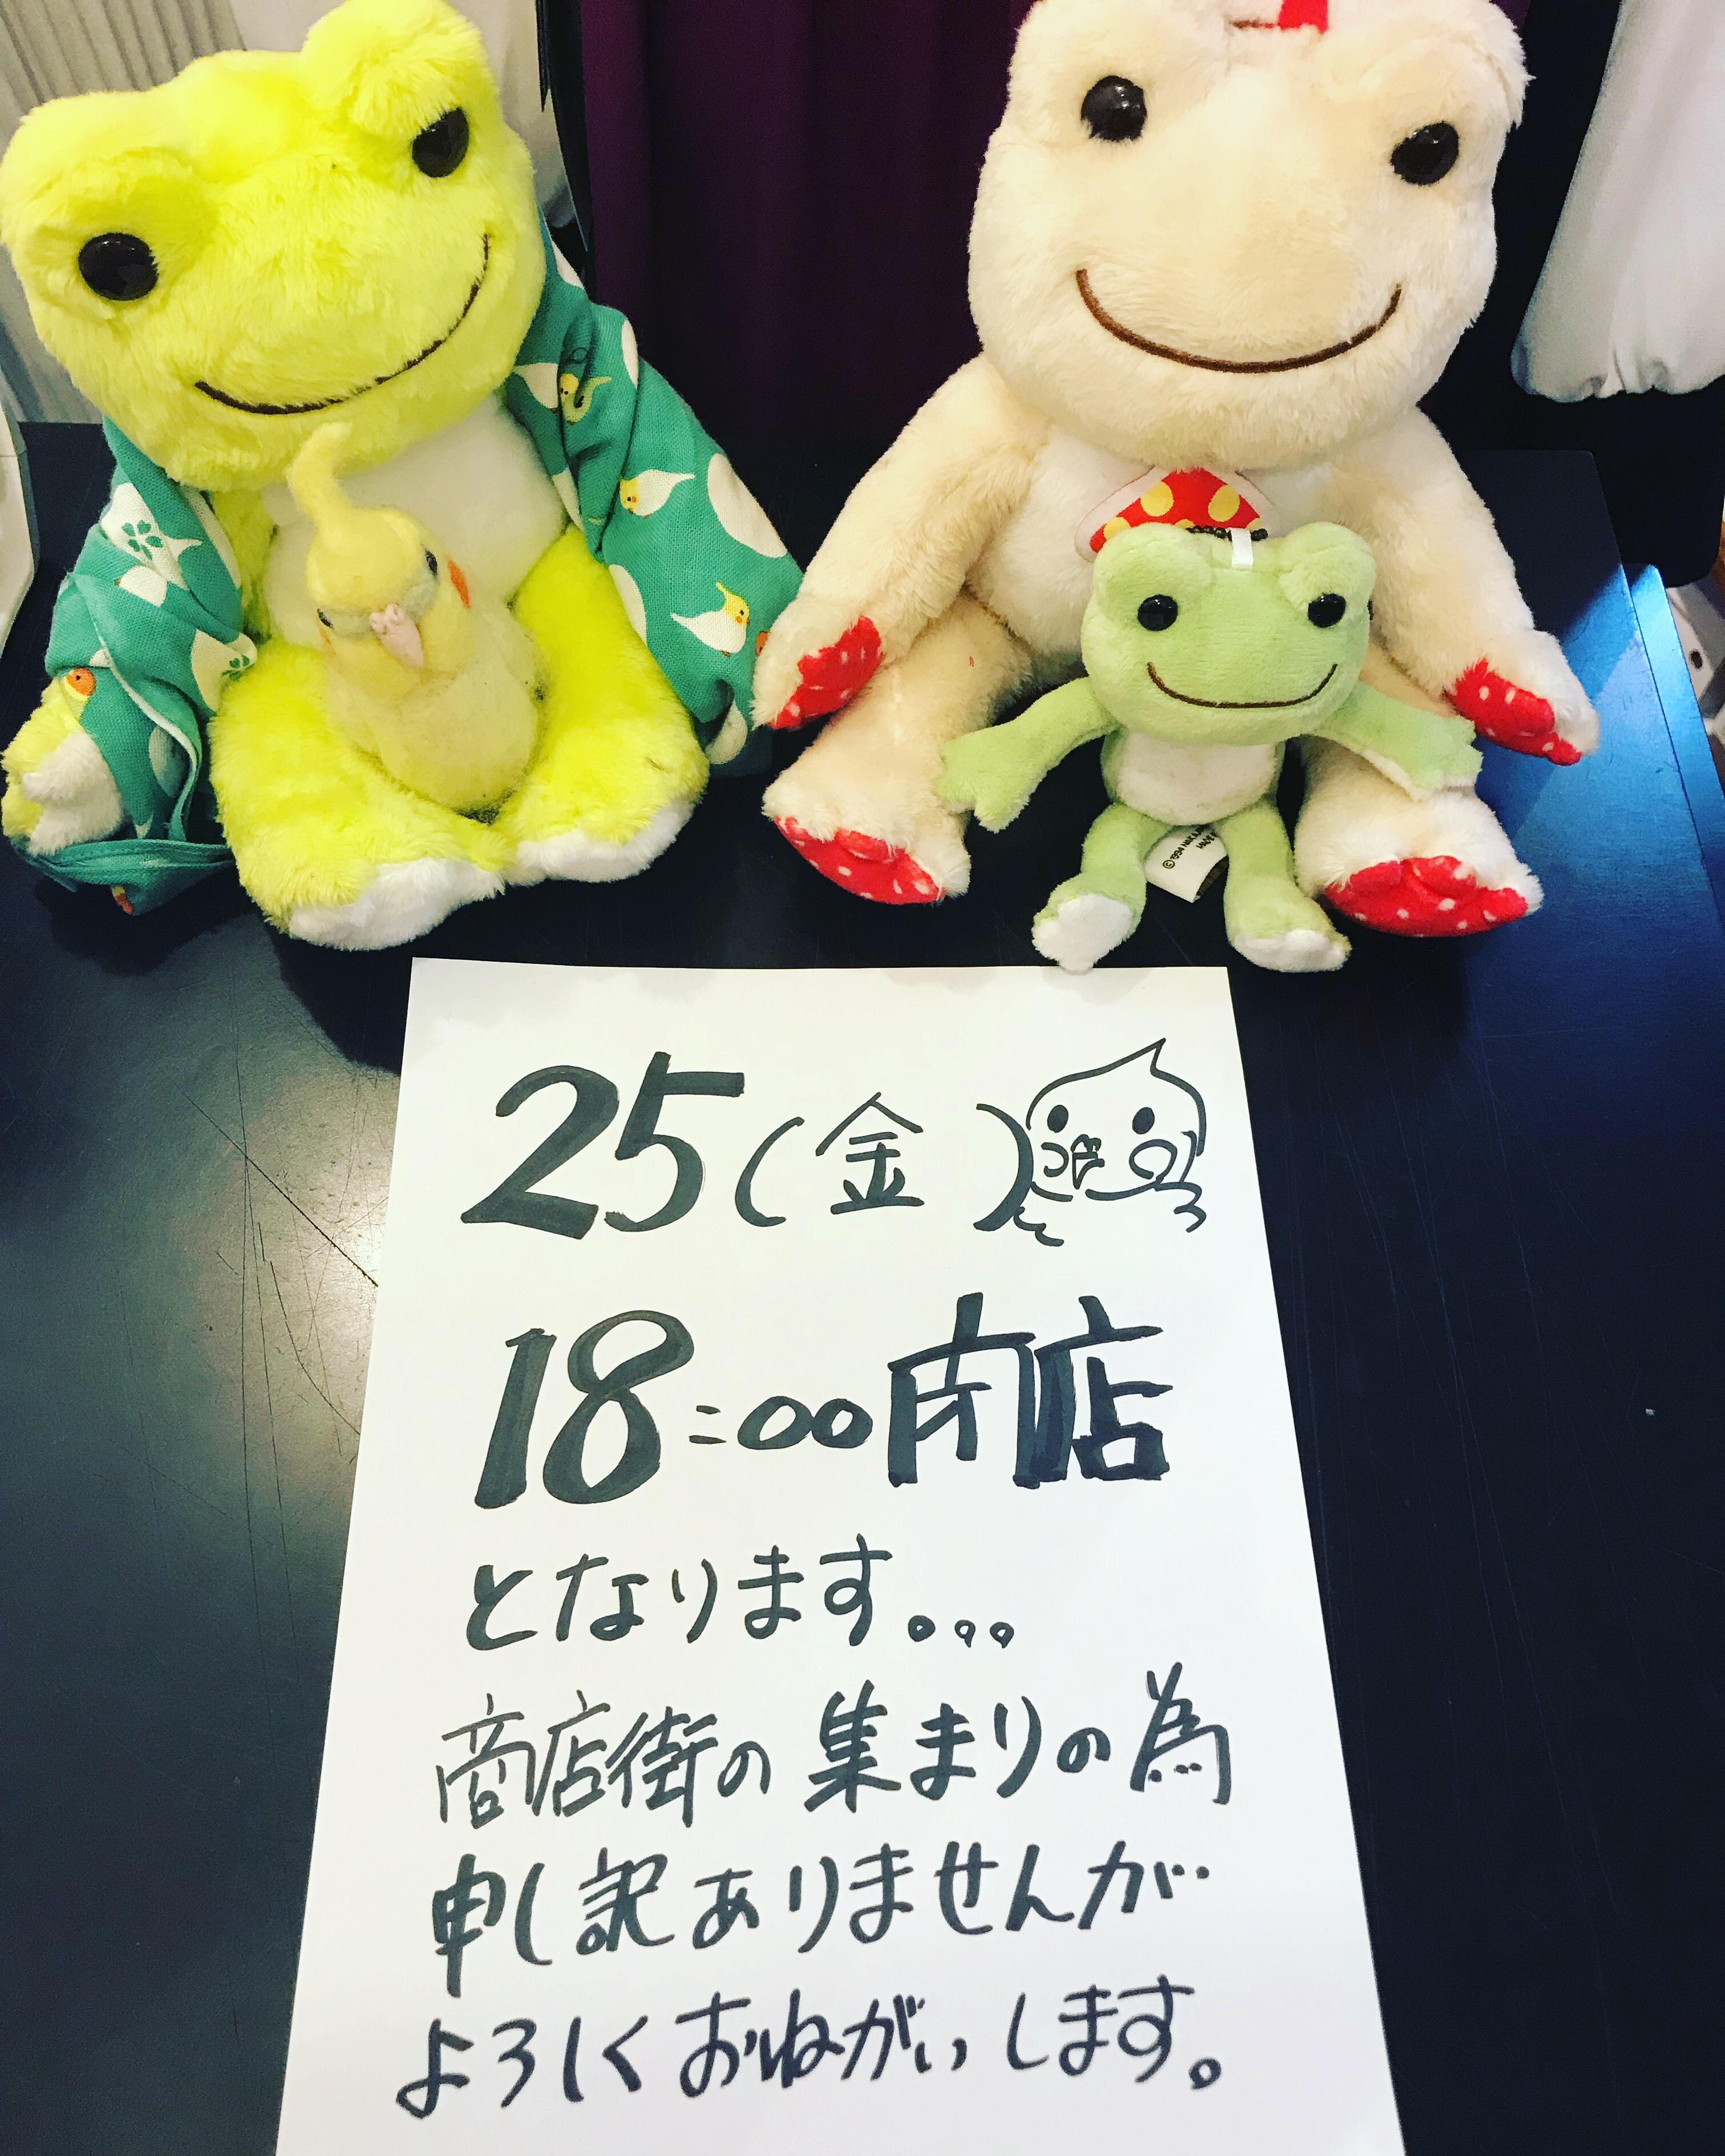 ©1994 NAKAJ
MADE
25(金)
18:00閉店
となります。。。
商店街の集まりの為
申し訳ありませんが
よろしくおねがいします。